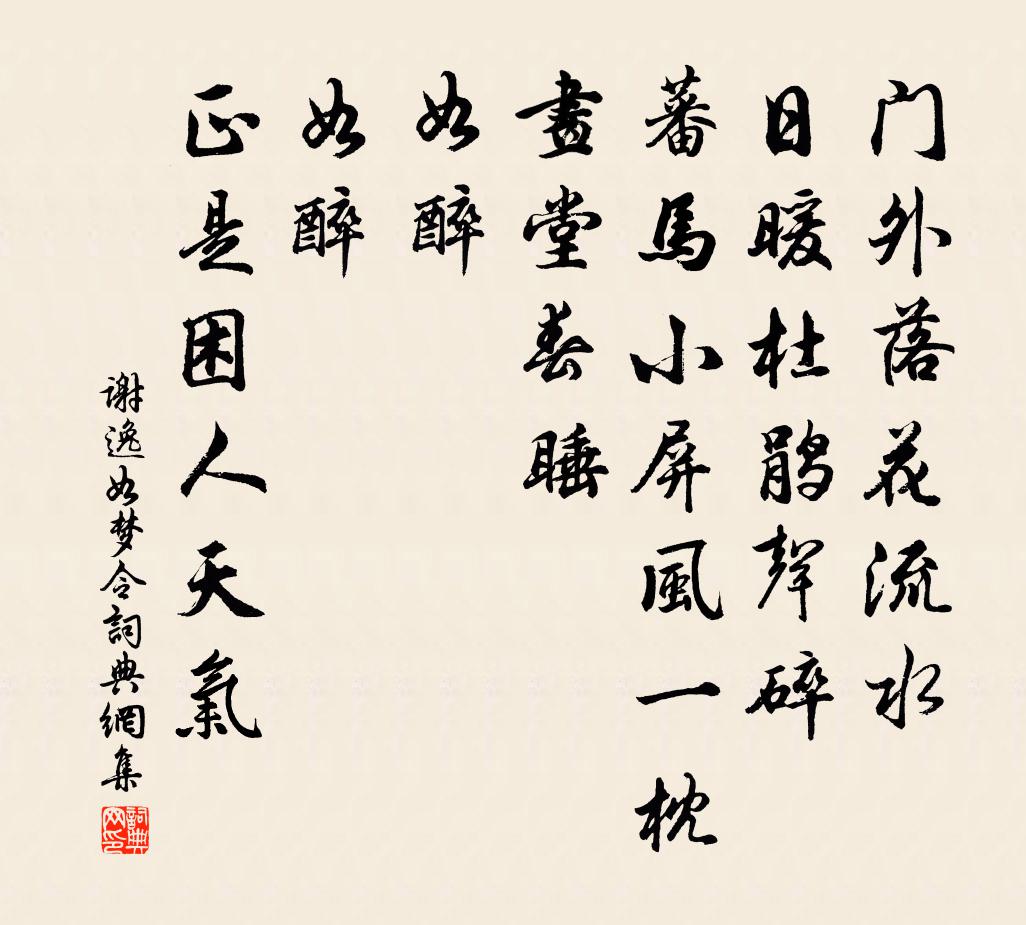 门外落花流水
日暖杜鹃聲碎
蕃馬小屏風一枕
畫堂春睡
如醉
如醉
正是困人天氣
谢逸如梦令詞典網集
詞典网印